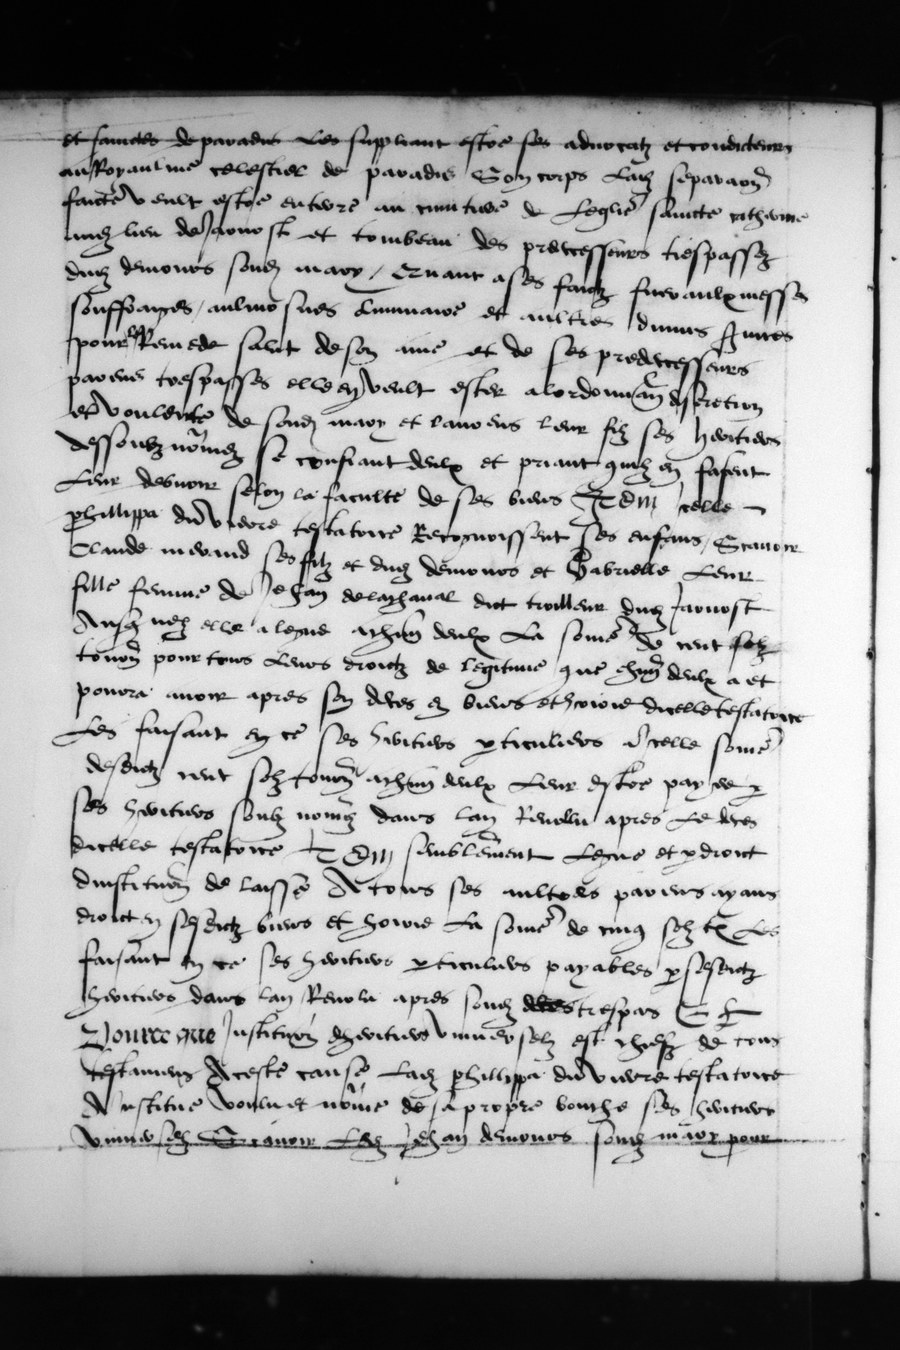 et sainctes de paradis Les supliant estre ses advocatz et conducteurs
au Royaulme celestiel de paradis Son corps Lad separaon
faicte veult estre enterre au cimitiere de Leglise saincte catherine
aud lieu de Jarnost et tombeau des predecesseurs trespassez
dud demours sond mary / Et quant a ses funeraulx messes
souffrages / aulmosnes Luminaire et aultres divins
pour le Remede salut de son ame et de ses predecesseurs
parens trespasses elle en veult ester a lordonnan discretion
et voulente de sond mary et laurens leur filz ses heritiers
dessoubz nomez se confiant deulx et priant quilz en facent
Leur debvoir selon la faculte de ses biens Item icelle
phillippa du vivere testatoire Recognoissent ses enfans / Scavoir
Claude ses filz et dud demours et Gabrielle Leur
fille femme de Jehan delachanal dict troilleur dud Jarnost
Ausquelz elle a legue a chun deulx La some de cent solz
tourn pour tous Leurs droictz de legitime que chun deulx a et
poura avoir apres son deces en biens et hoirie dicelle testatoire
Les faisant en ce ses heritiers pticuliers icelle some
desdictz cent solz tourn a chun deulx Leur estre payee p
ses heritiers soubz nomez dans lan Revolu apres Le deces
dicelle testatoire Item semblement Legue et p droict
dinstitution de laisse A tous ses aultres parens ayans
droict en sesdictz biens et hoirie La some de cinq solz tz Les
faisant en ce ses heritiers pticuliers payables p sesdictz
heritiers dans lan Revolu apres sond trespas Et
Pource que Institution dheritiers universelz est chiefz de tous
testamens A ceste cause Lad phillippa du vivere testatoire
A institue voulu et nome de sa propre bouche ses heritiers
universelz Scavoir Led Jehan demours sond mary pour